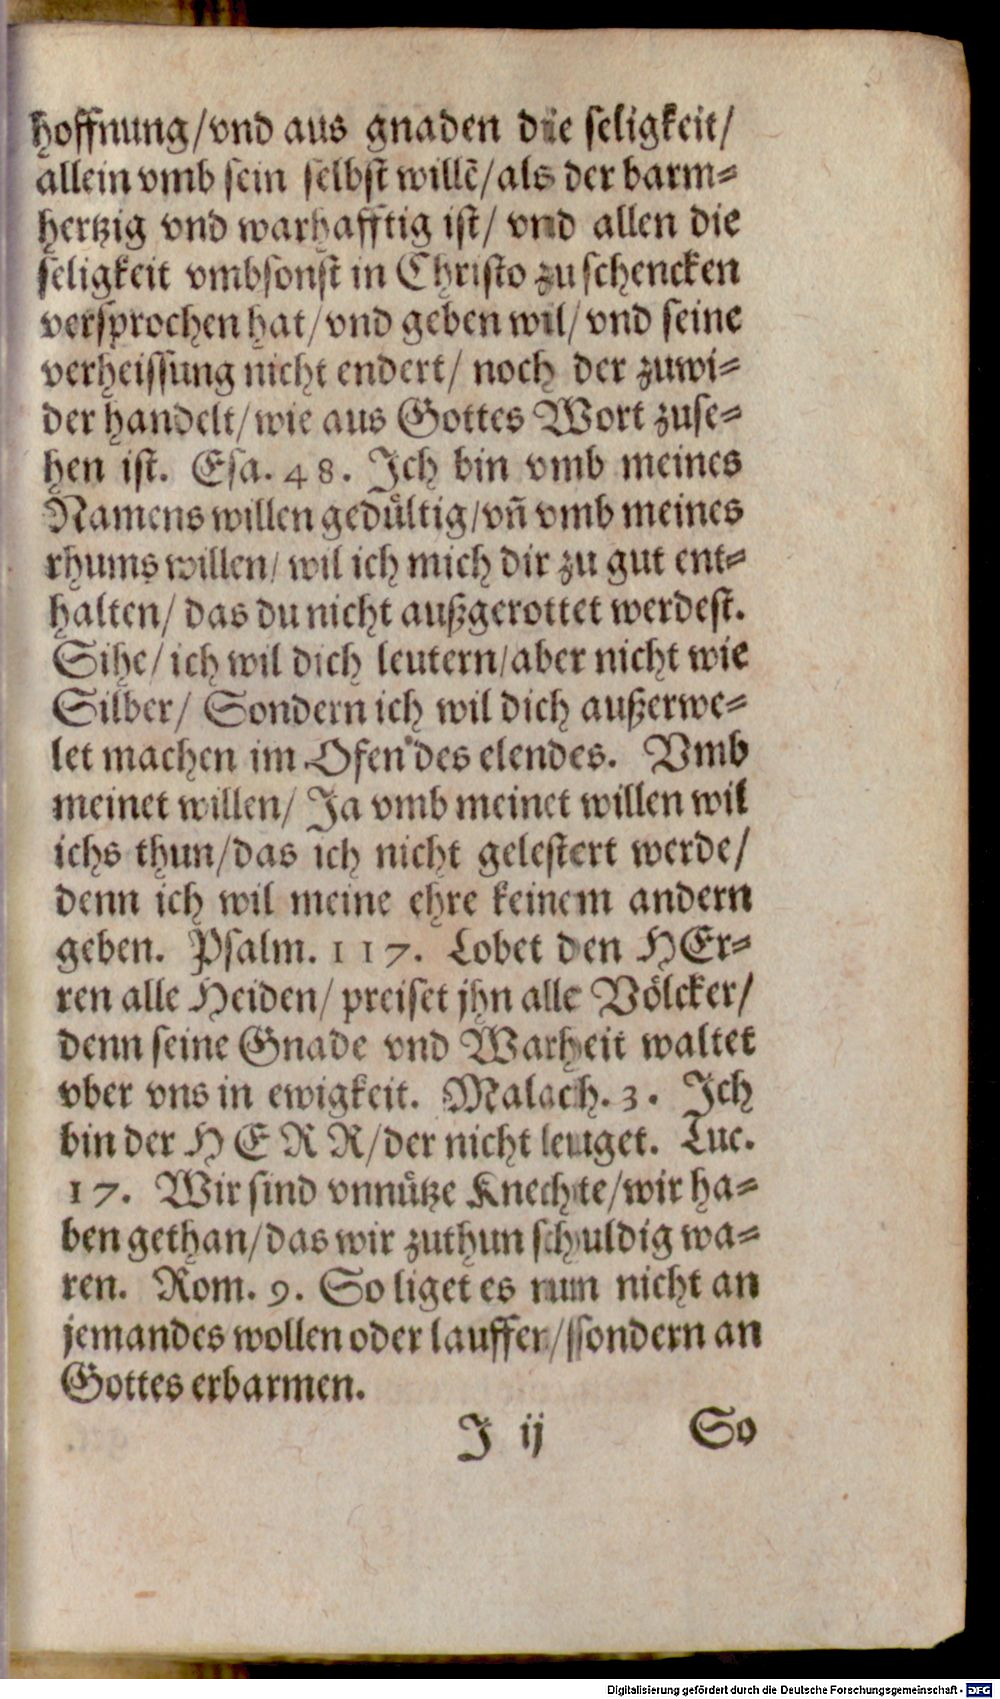 hoffnung/vnd aus gnaden die seligkeit/
allein vmb sein selbst willē/als der barm=
hertzig vnd warhafftig ist/ vnd allen die
seligkeit vmbsonst in Christo zu schencken
versprochen hat/vnd geben wil/vnd seine
verheissung nicht endert/ noch der zuwi=
der handelt/wie aus Gottes Wort zuse=
hen ist. Esa. 48. Ich bin vmb meines
Namens willen gedültig/vñ vmb meines
rhums willen/ wil ich mich dir zu gut ent=
halten/ das du nicht außgerottet werdest.
Sihe/ich wil dich leutern/aber nicht wie
Silber/ Sondern ich wil dich außerwe=
let machen im Ofen des elendes. Vmb
meinet willen/ Ja vmb meinet willen wil
ichs thun/das ich nicht gelestert werde/
denn ich wil meine ehre keinem andern
geben. Psalm. 117. Lobet den HEr=
ren alle Heiden/ preiset jhn alle Völcker/
denn seine Gnade vnd Warheit waltet
vber vns in ewigkeit. Malach. 3. Ich
bin der HERR/der nicht leuget. Luc.
17. Wir sind vnnütze Knechte/wir ha=
ben gethan/das wir zuthun schuldig wa=
ren. Rom. 9. So liget es nun nicht an
jemandes wollen oder lauffen/ sondern an
Gottes erbarmen.
J ij So
Digitalisierung gefördert durch die Deutsche Forschungsgemeinschaft - DFG